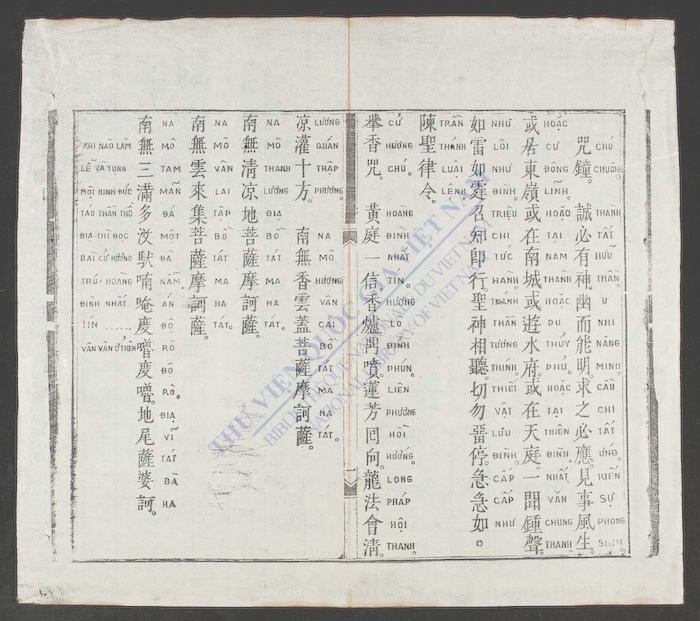 咒鐘。誠必有神。幽而能明。求之必應。見事風生。
CHÚ CHUÔNG. THÀNH TẤT HỮU THẦN. U NHI NĂNG MINH. CẦU CHI TẤT ỨNG. KIẾN SỰ PHONG SINH.
或居東嶺。或在南城。或遊水府。或在天庭。一聞鍾聲。
HOẶC CƯ ĐÔNG LĨNH. HOẶC TẠI NAM THÀNH. HOẶC DU THUỶ PHỦ. HOẶC TẠI THIÊN ĐÌNH. NHẤT VĂN CHUNG THANH.
如雷如霆。召知即行。聖神相聽。切勿畱停。急急如。
NHƯ LÔI NHƯ ĐÌNH. TRIỆU TRI TỨC HÀNH. THÁNH THẦN TƯƠNG THÍNH. THIẾT VẬT LƯU ĐÌNH. CẤP CẤP NHƯ
陳聖律令。
TRẦN THÁNH LUẬT LỆNH.
舉香咒。黃庭一信。香爐門噴。蓮芳囘向。龍法會清。
CỬ HƯƠNG CHÚ. HOÀNG ĐÌNH NHẤT TÍN. HƯƠNG LÔ ĐỈNH PHÚN. LIÊN PHƯƠNG HỒI HƯỚNG. LONG PHÁP HỘI THANH.
凉灌十方。南無香雲蓋菩薩摩訶薩。
LƯƠNG QUÁN THẬP PHƯƠNG. NA MÔ HƯƠNG VÂN CÁI BỒ TÁT MA HA TÁT.
南無清凉地菩薩摩訶薩。
NA MÔ THANH LƯƠNG ĐỊA BỒ TÁT MA HA TÁT.
南無雲來集菩薩摩訶薩。
NA MÔ VÂN LAI TẬP BỒ TÁT MA HA TÁT.
南無三滿多没馱喃唵度嚕度嚕地尾薩婆訶。
NA MÔ TAM MÃN ĐÁ MỘT ĐÀ NẪM. ÁN ĐỘ RÔ ĐỘ RÔ. ĐỊA VĨ TÁT BÀ HA
KHI NÀO LÀM
LỄ VÀ TỤNG
MỘI KINH ĐỨC
TAO THẦN THỔ
ĐỊA-THÌ ĐỌC
BÀI CỬ HƯƠNG
TRÚ HOÀNG
ĐÌNH NHẤT
TÍN ......
VÂN VÂN Ở TRÊN
一
THƯ VIỆN QUỐC GIA VIỆT NAM
BIBLIOTHÈQUE NATIONALE DU VIETNAM
NATIONAL LIBRARY OF VIETNAM